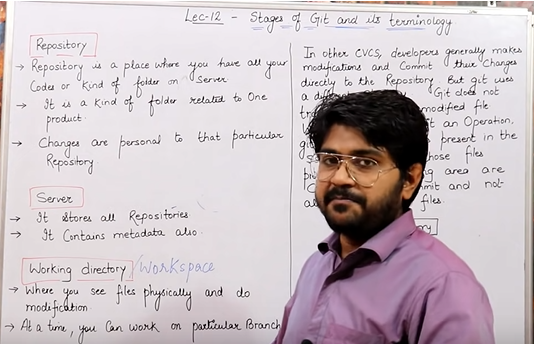 Lec-12 - Stages of Git and its terminology
Repository
→ Repository is a place where you have all your
Codes or kind of folder on Server
→ It is a kind of folder related to One
product.
→ Changes are personal to that particular
Repository.
Server
→ It Stores all Repositories
→ It Contains metadata also.
Working directory / Workspace
→ Where you see files physically and do
modification
→ At a time, you Can work on particular Branch
In other CVCS, developers generally makes
modifications and Commit their Changes
directly to the Repository. But git uses
a different Git does not
modified file
an Operation,
present in the
those files
area are
and not
files.